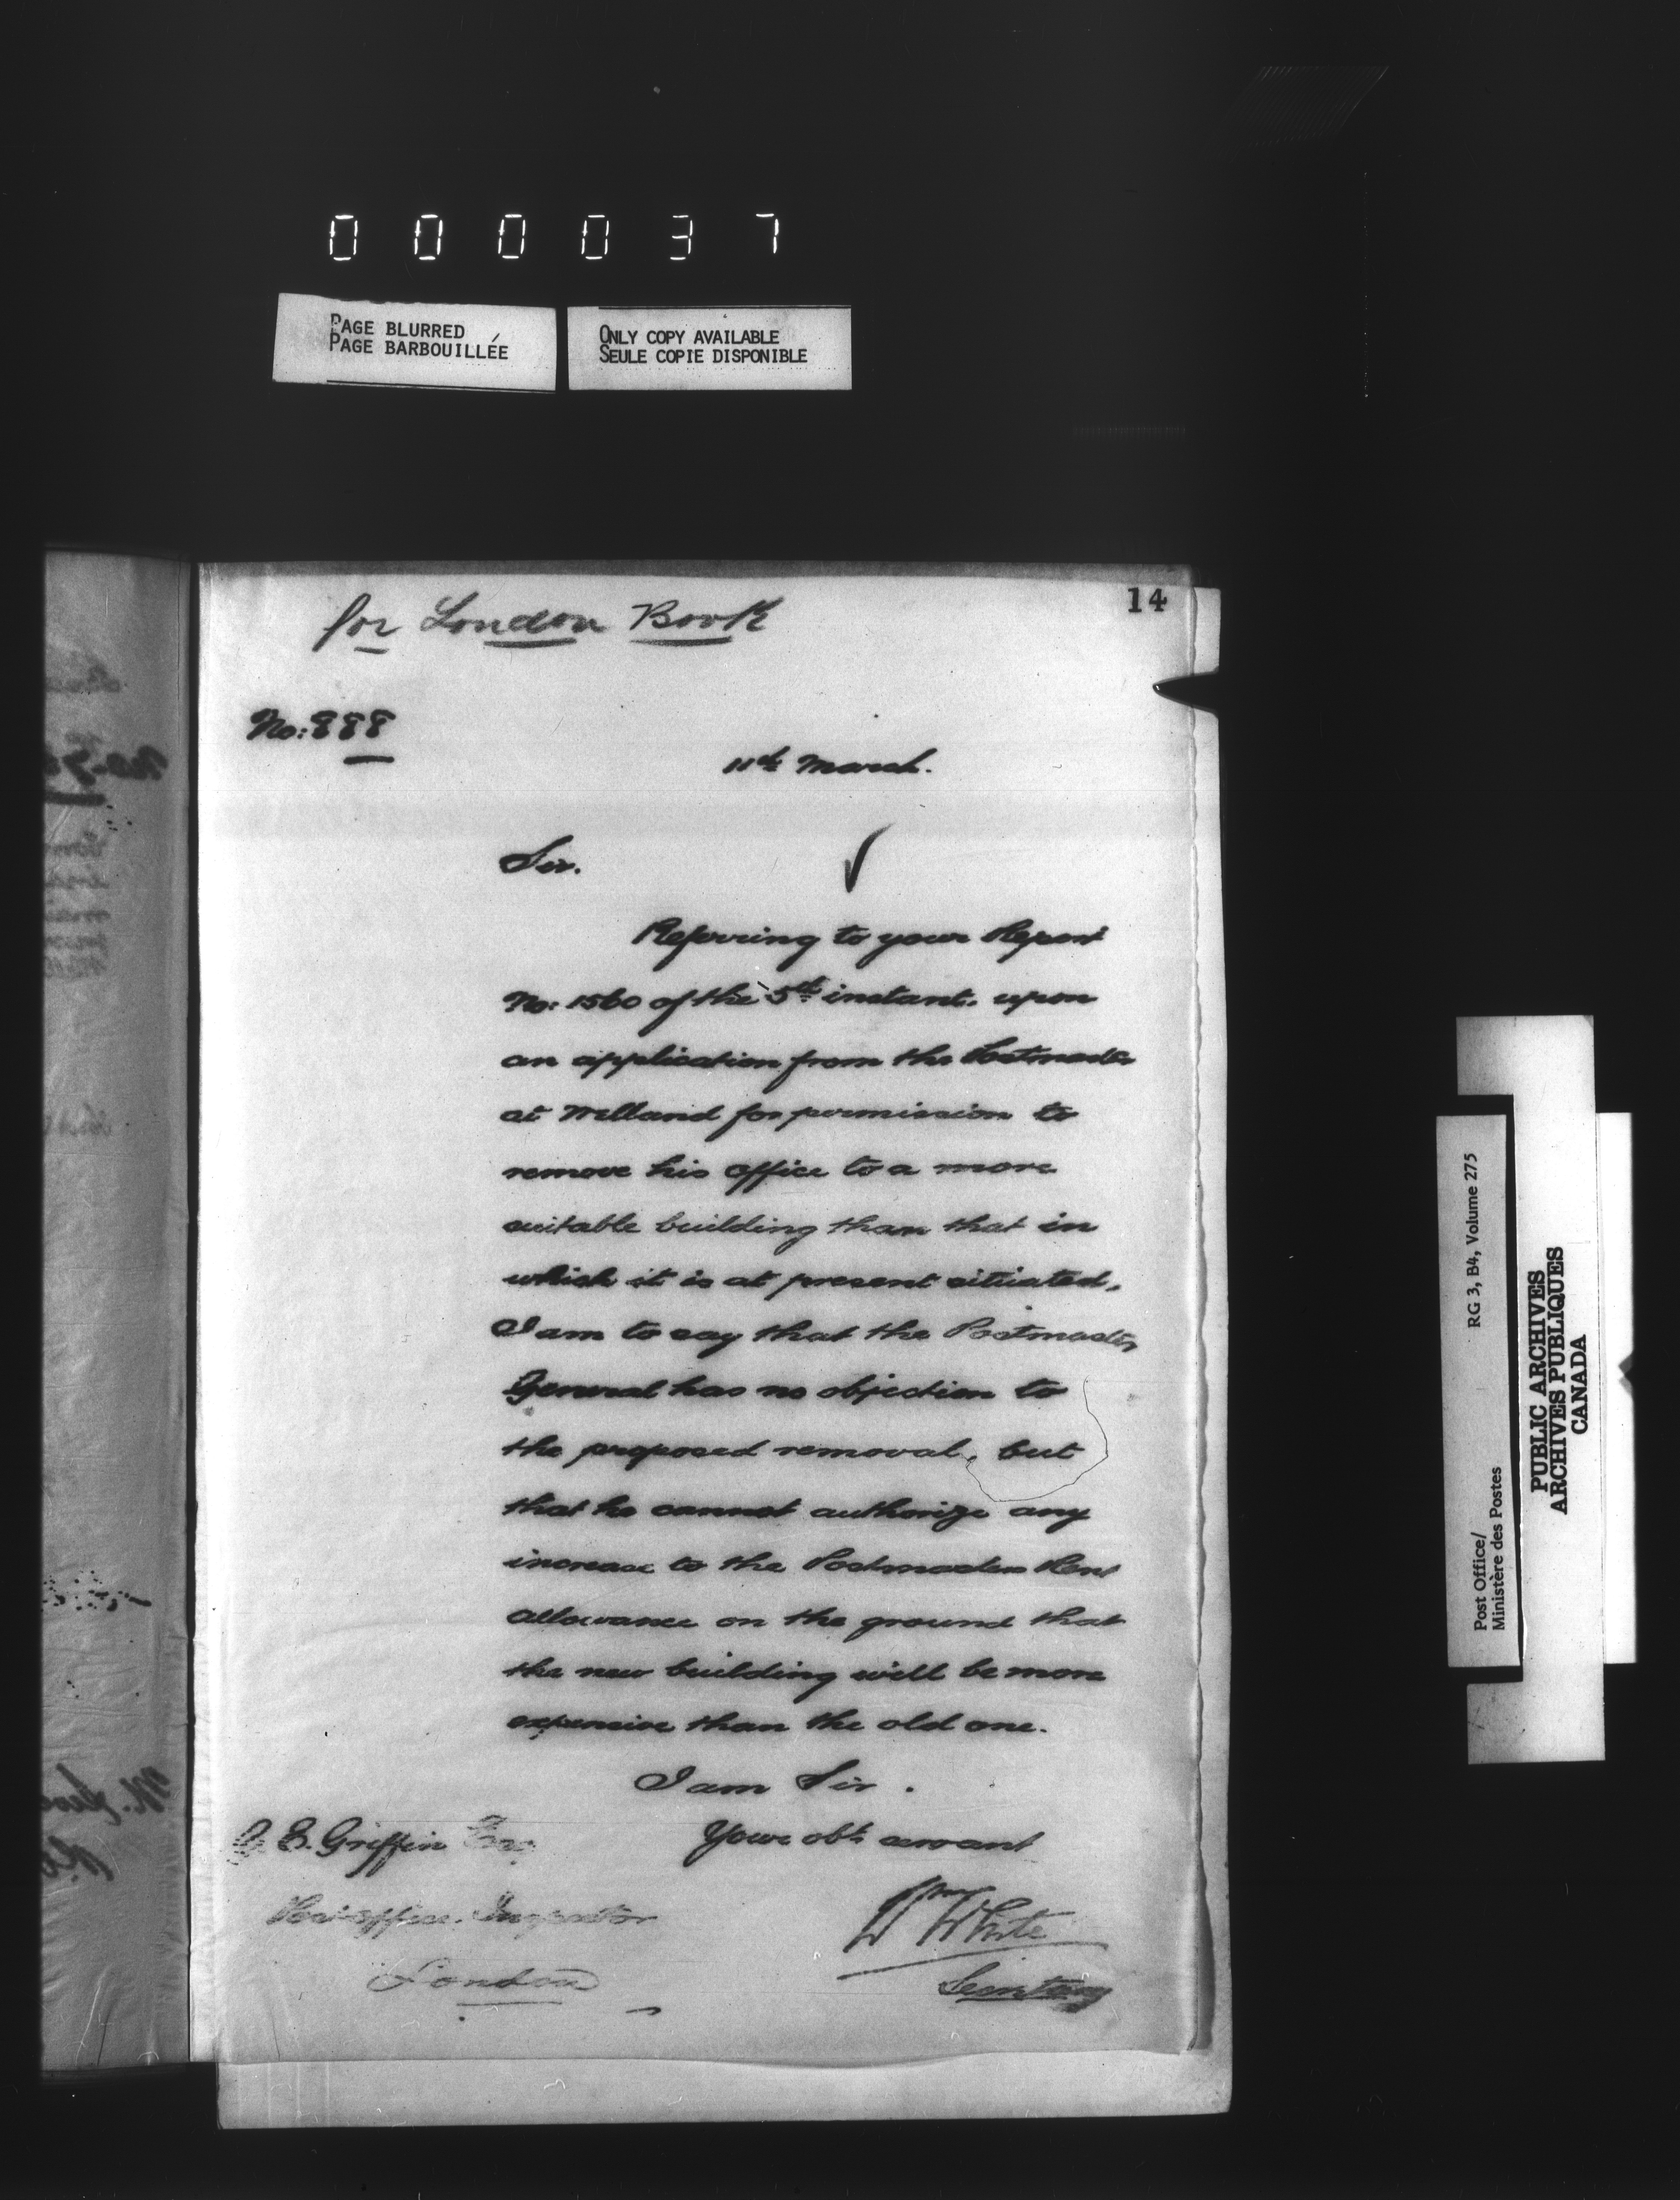 000037
PAGE BLURRED
PAGE BARBOUILLÉE
ONLY COPY AVAILABLE
SEULE COPIE DISPONIBLE
14
for London Book
No: 888
11th March.
Sir.
Referring to your Report
No: 1560 of the 5th instant. upon
an application from the Postmaster
at Welland for permission to
remove his office to a more
suitable building than that in
which it is at present situated,
I am to say that the Postmaster
General has no objection to
the proposed removal, but
that he cannot authorize any
increase to the Postmasters Rent
allowance on the ground that
the new building will be more
expensive than the old one.
I am Sir.
Your obt servant
E. Griffin Esq
Post Office Inspector
London
Wm White
Secretary
Post Office/
Ministère des Postes
RG 3, B4, Volume 275
PUBLIC ARCHIVES
ARCHIVES PUBLIQUES
CANADA